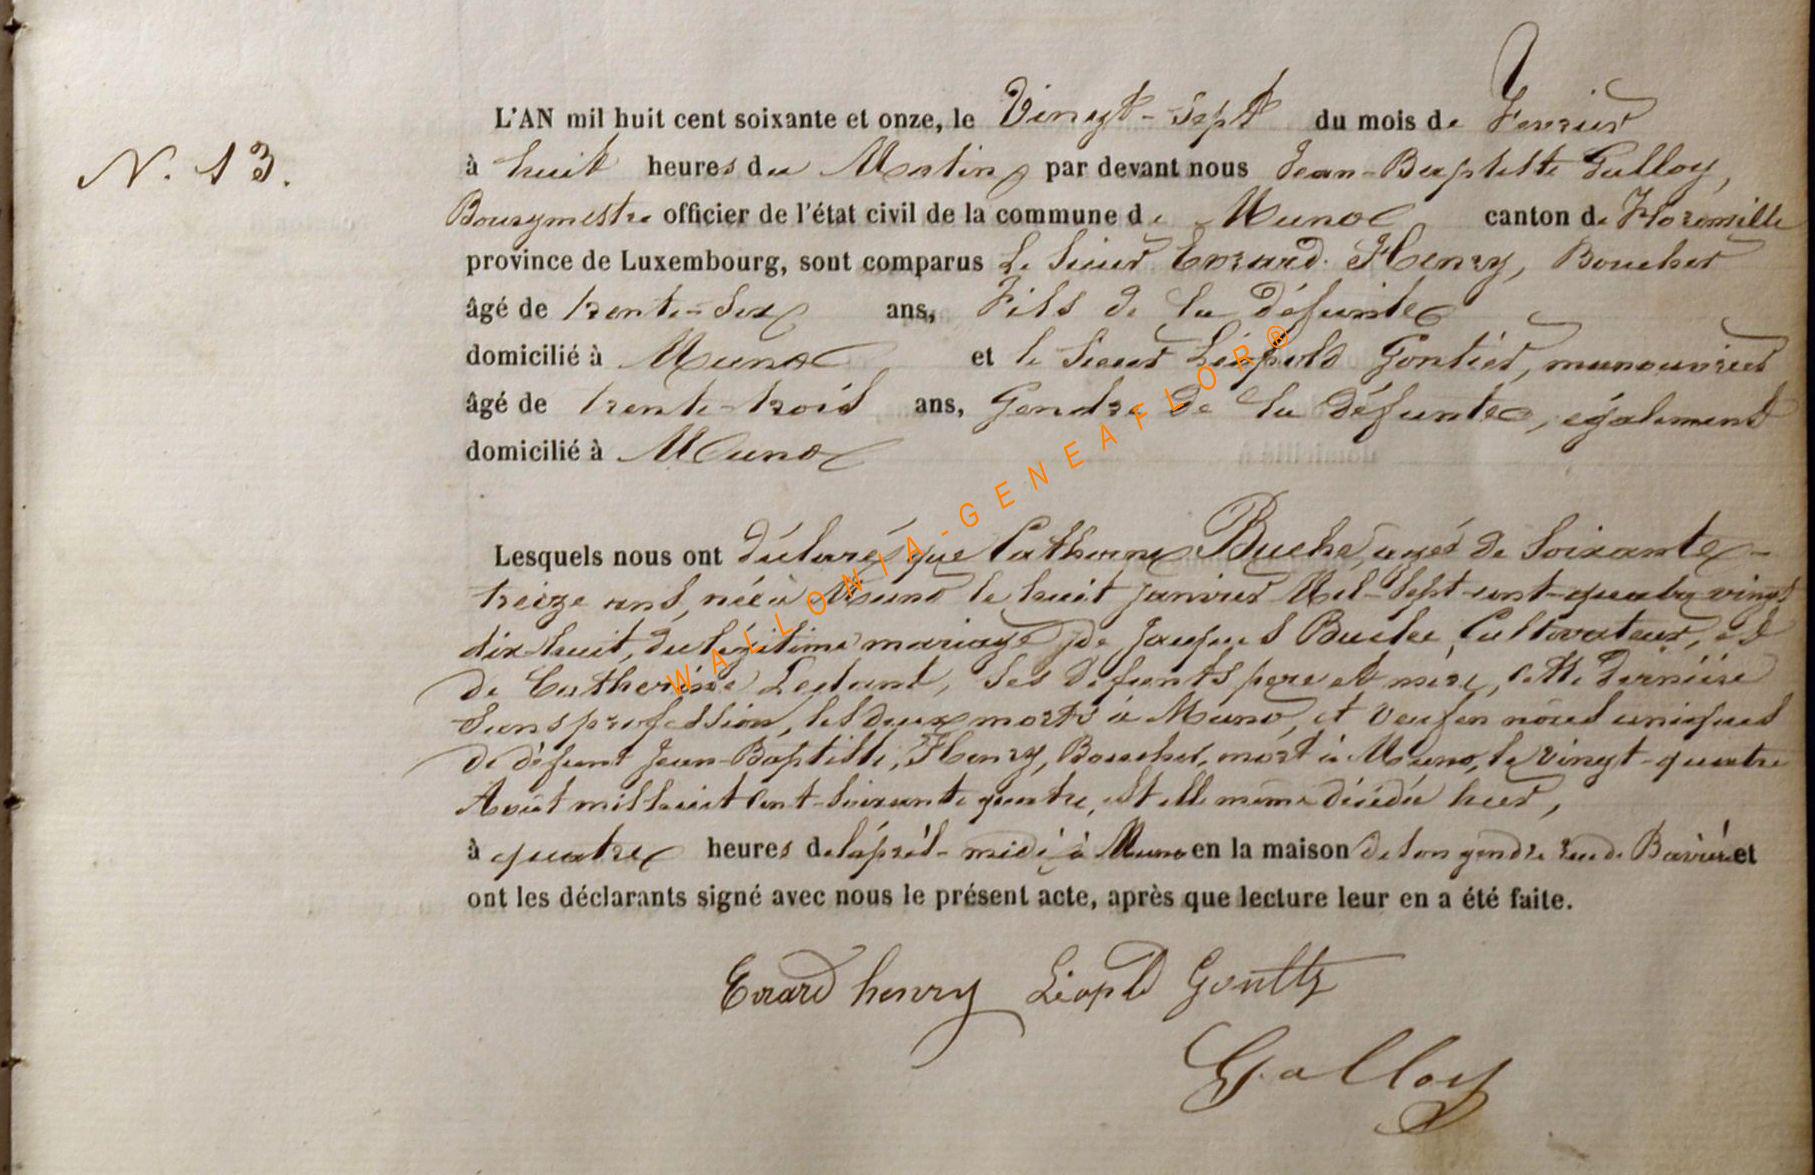 L'AN mil huit cent soixante et onze, le Vingt-Sept du mois de Fevrier
N. 13.
à huit heures du Matin, par devant nous Jean-Baptiste Galloy,
Bourgmestre officier de l'état civil de la commune de Muno canton de Florenville
province de Luxembourg, sont comparus Le Sieur Evrard Henry, Boucher
âgé de trente-six ans, Fils de la défunte
domicilié à Muno et le Sieur Léopold Gontier, manouvrier
âgé de trente-trois ans, Gendre de la défunte, également
domicilié à Muno
Lesquels nous ont déclaré que Catherine Buche, agée de Soixante-
treize ans, née à Muno le huit janvier Mil-Sept-cent-quatre vingt
dix huit, du légitime mariage de Jacques Buche, Cultivateur, et
de Catherine Ledant, Ses défunts pere et mère, cette dernière
Sans profession, les deux morts à Muno, et veuf en noces uniques
de défunt Jean-Baptiste, Henry, Boucher, mort à Muno, le vingt-quatre
Août mil huit Cent-Soixante quatre, est elle même décédée hier,
à quatre heures de l'après-midi à Muno en la maison de son gendre rue de Bavière et
ont les déclarants signé avec nous le présent acte, après que lecture leur en a été faite.
Evrard henry Léopold
Galloy
WALLONIA-GENEAFLOR®